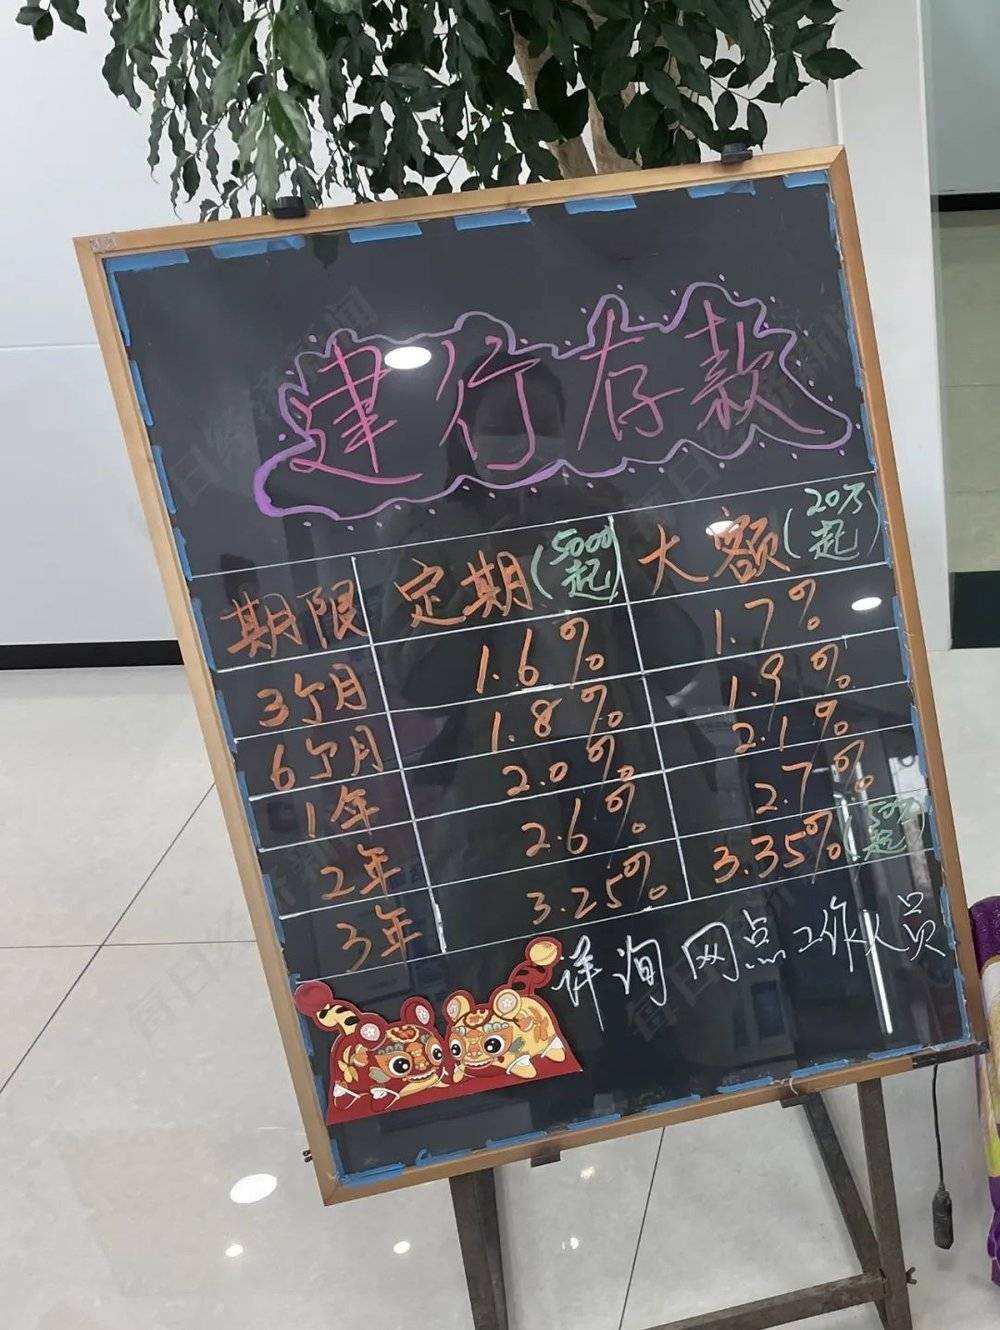 建行存款
期限 定期(5000起) 大额(20万起)
3个月 1.6% 1.7%
6个月 1.8% 1.9%
1年 2.0% 2.1%
2年 2.6% 2.7%
3年 3.25% 3.35%(50万起)
详询网点工作人员
每日经济新闻